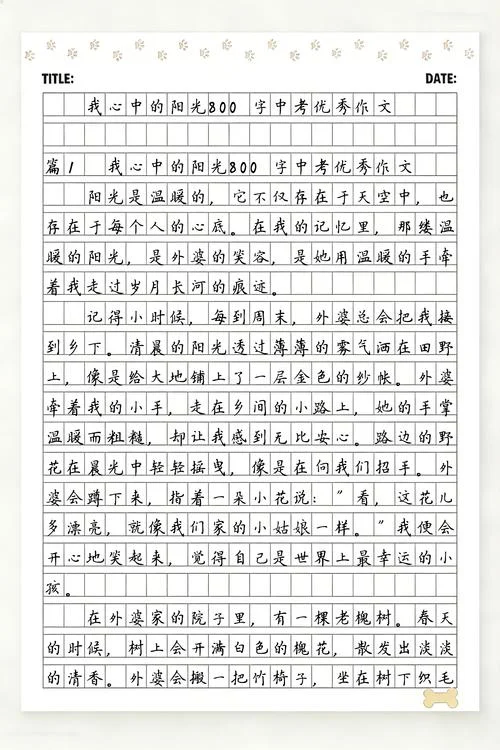 TITLE:
DATE:
我心中的阳光800 字中考优秀作文
篇1 我心中的阳光800 字中考优秀作文
阳光是温暖的，它不仅存在于天空中，也
存在于每个人的心底。在我的记忆里，那缕温
暖的阳光，是外婆的笑容，是她用温暖的手牵
着我走过岁月长河的痕迹。
记得小时候，每到周末，外婆总会把我接
到乡下。清晨的阳光透过薄薄的雾气洒在田野
上，像是给大地铺上了一层金色的纱帐。外婆
牵着我的小手，走在乡间的小路上，她的手掌
温暖而粗糙，却让我感到无比安心。路边的野
花在晨光中轻轻摇曳，像是在向我们招手。外
婆会蹲下来，指着一朵小花说："看，这花儿
多漂亮，就像我们家的小姑娘一样。"我便会
开心地笑起来，觉得自己是世界上最幸运的小
孩。
在外婆家的院子里，有一棵老槐树。春天
的时候，树上会开满白色的槐花，散发出淡淡
的清香。外婆会搬一把竹椅子，坐在树下织毛